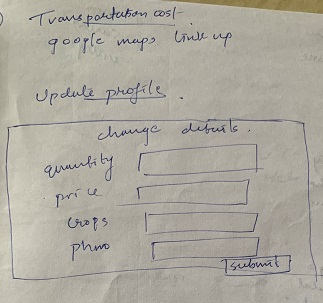 Transportation cost
google maps link up
Update profile.
change details.
quantity
price
crops
phno
submit